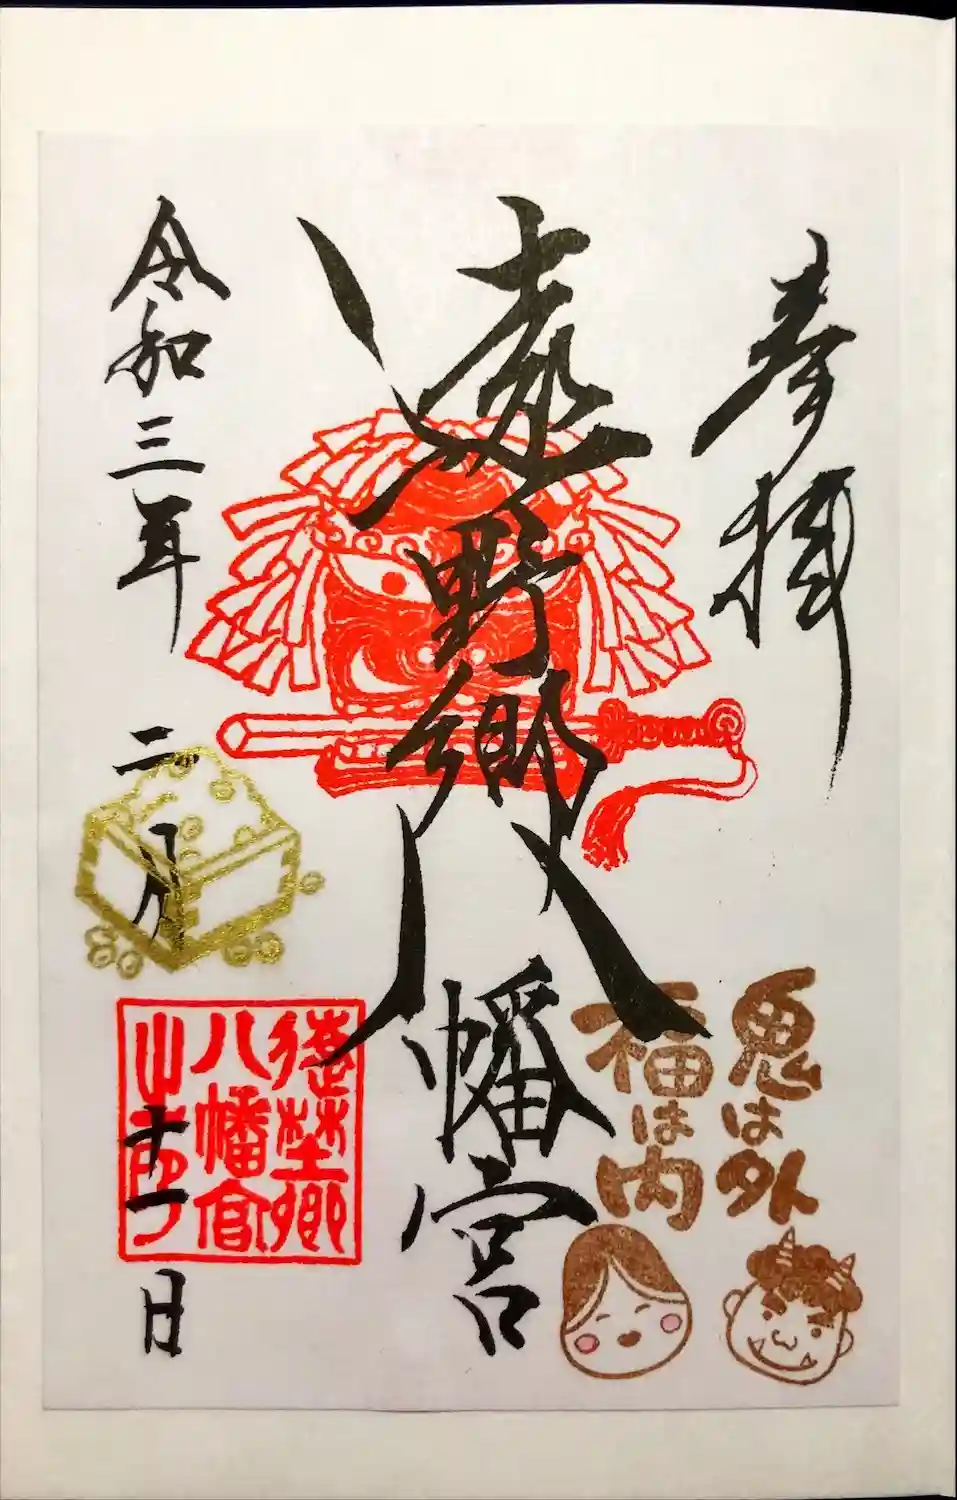 奉拝
鬼は外
福は内
遠野郷八幡宮
遠埜郷
八幡宮
之印
令和三年二月十一日